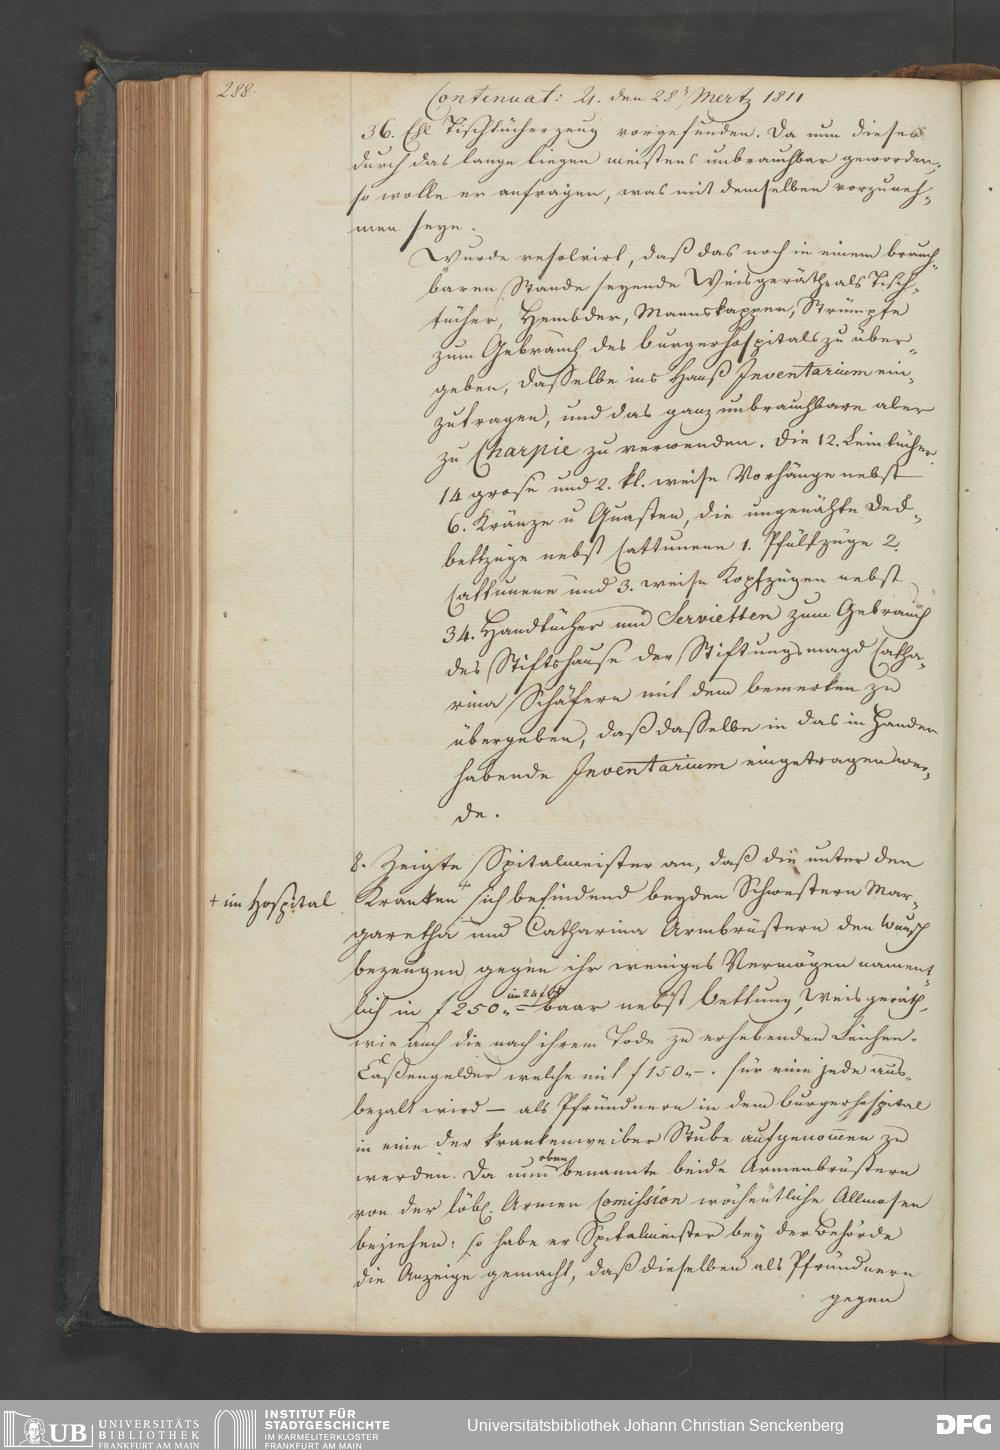 288.
Continuat: 4. den 28t Mertz 1811
36. Ehl Tischtücherzeug vorgefunden. Da nun dieses
durch das lange liegen meistens unbrauchbar geworden,
so wolle er anfragen, was mit demselben vorzuneh-
men seye.
Wurde resolvirt, daß das noch in einem brauch-
baren Stande seyende Weisgeräthe als Tisch-
tücher, Hembder, Mannskappen, Strümpfe
zum Gebrauch des burgerhospitals zu über-
geben, dasselbe ins Hauß Inventarium ein-
zutragen, und das ganz unbrauchbare aber
zu Charpie zu verwenden. Die 12. Leintücher
14 grose und 2. kl. weise Vorhänge nebst
6. Kränze u Quasten, die ungenähte Deck-
bettzüge nebst Cattunene 1. Pfülfzüge 2.
Cattunene und 3. weise Kopfzügen nebst
34. Handtücher und Servietten zum Gebrauch
des Stiftshause der Stiftungsmagd Catha-
rina Schäfern mit dem bemerken zu
übergeben, daß dasselbe in das in Handen
habende Inventarium eingetragen wer-
de.
8. Zeigte Spitalmeister an, daß die unter den
+ im Hospital
Kranken + sich befindend beyden Schwestern Mar-
garetha und Catharina Armbrüstern den Wunsch
bezeugen gegen ihr weniges Vermögen nament-
lich in f 250.- im 24 f baar nebst bettung, Weisgeräth,
wie auch die nach ihrem Tode zu erhebenden Leichen-
Caßengelder welche mit f 150.-. für eine jede aus-
bezalt wird — als Pfründnern in dem burgerhospital
in eine der krankenweiber Stube aufgenommen zu
werden. Da nun oben benannte beide Armenbrüstern
von der löbl. Armen Comission wöchentliche Allmosen
beziehen: so habe er Spitalmeister bey der Behörde
die Anzeige gemacht, daß dieselben als Pfründnern
gegen
UB UNIVERSITÄTS
BIBLIOTHEK
FRANKFURT AM MAIN
INSTITUT FÜR
STADTGESCHICHTE
IM KARMELITERKLOSTER
FRANKFURT AM MAIN
Universitätsbibliothek Johann Christian Senckenberg
DFG